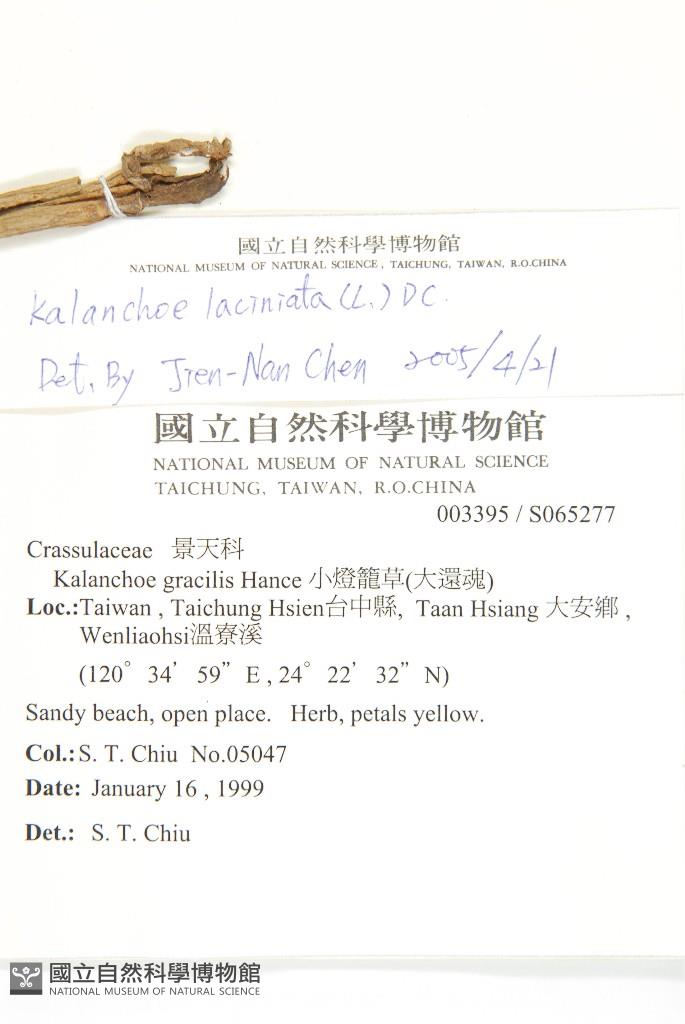 國立自然科學博物館
NATIONAL MUSEUM OF NATURAL SCIENCE, TAICHUNG, TAIWAN, R.O.CHINA
Kalanchoe laciniata (L.) DC.
Det. By Jien-Nan Chen 2005/4/21
國立自然科學博物館
NATIONAL MUSEUM OF NATURAL SCIENCE
TAICHUNG, TAIWAN, R.O.CHINA
003395 / S065277
Crassulaceae 景天科
Kalanchoe gracilis Hance 小燈籠草(大還魂)
Loc.:Taiwan , Taichung Hsien台中縣, Taan Hsiang 大安鄉 ,
Wenliaohsi溫寮溪
(120° 34’ 59” E , 24° 22’ 32” N)
Sandy beach, open place. Herb, petals yellow.
Col.: S. T. Chiu No.05047
Date: January 16 , 1999
Det.: S. T. Chiu
國立自然科學博物館
NATIONAL MUSEUM OF NATURAL SCIENCE